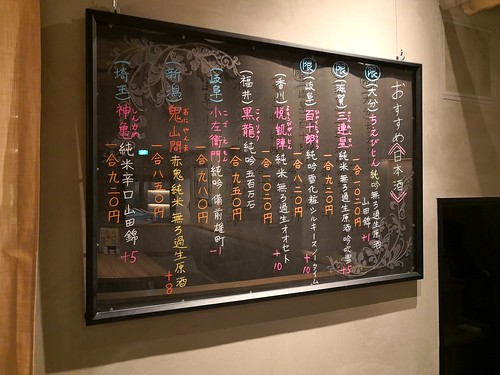 おすすめ《日本酒》
限 (大分) ちえびじん 純吟 無ろ過生原酒 山田錦 +1
一合一〇二〇円
限 (滋賀) 三連星 純米 無ろ過生原酒 吟吹雪 +5
一合九二〇円
限 (岐阜) 百十郎 純吟 雪化粧 シルキースノータイム +10
一合八二〇円
(香川) 悦凱陣 純米 無ろ過生 オオセト +10
一合一〇二〇円
(福井) 黒龍 こくりゅう 純吟 五百万石
一合九五〇円
(岐阜) 小左衛門 こざえもん 純吟 備前雄町 -1
一合九八〇円
(新潟) 鬼山間 おにやんま 赤鬼 純米 無ろ過生原酒 +8
一合八五〇円
(埼玉) 神亀 しんかめ 純米辛口 山田錦 +5
一合九二〇円